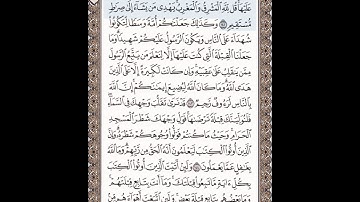 عَلَيْهَا قُل لِّلَّهِ الْمَشْرِقُ وَالْمَغْرِبُ يَهْدِي مَن يَشَاءُ إِلَىٰ صِرَاطٍ
مُّسْتَقِيمٍ وَكَذَٰلِكَ جَعَلْنَاكُمْ أُمَّةً وَسَطًا لِّتَكُونُوا
شُهَدَاءَ عَلَى النَّاسِ وَيَكُونَ الرَّسُولُ عَلَيْكُمْ شَهِيدًا وَمَا
جَعَلْنَا الْقِبْلَةَ الَّتِي كُنتَ عَلَيْهَا إِلَّا لِنَعْلَمَ مَن يَتَّبِعُ الرَّسُولَ
مِمَّن يَنقَلِبُ عَلَىٰ عَقِبَيْهِ وَإِن كَانَتْ لَكَبِيرَةً إِلَّا عَلَى الَّذِينَ
هَدَى اللَّهُ وَمَا كَانَ اللَّهُ لِيُضِيعَ إِيمَانَكُمْ إِنَّ اللَّهَ
بِالنَّاسِ لَرَءُوفٌ رَّحِيمٌ قَدْ نَرَىٰ تَقَلُّبَ وَجْهِكَ فِي السَّمَاءِ
فَلَنُوَلِّيَنَّكَ قِبْلَةً تَرْضَاهَا فَوَلِّ وَجْهَكَ شَطْرَ الْمَسْجِدِ
الْحَرَامِ وَحَيْثُ مَا كُنتُمْ فَوَلُّوا وُجُوهَكُمْ شَطْرَهُ وَإِنَّ
الَّذِينَ أُوتُوا الْكِتَابَ لَيَعْلَمُونَ أَنَّهُ الْحَقُّ مِن رَّبِّهِمْ وَمَا اللَّهُ
بِغَافِلٍ عَمَّا يَعْمَلُونَ وَلَئِنْ أَتَيْتَ الَّذِينَ أُوتُوا الْكِتَابَ
بِكُلِّ آيَةٍ مَّا تَبِعُوا قِبْلَتَكَ وَمَا أَنتَ بِتَابِعٍ قِبْلَتَهُمْ
وَمَا بَعْضُهُم بِتَابِعٍ قِبْلَةَ بَعْضٍ وَلَئِنِ اتَّبَعْتَ أَهْوَاءَهُم مِّن